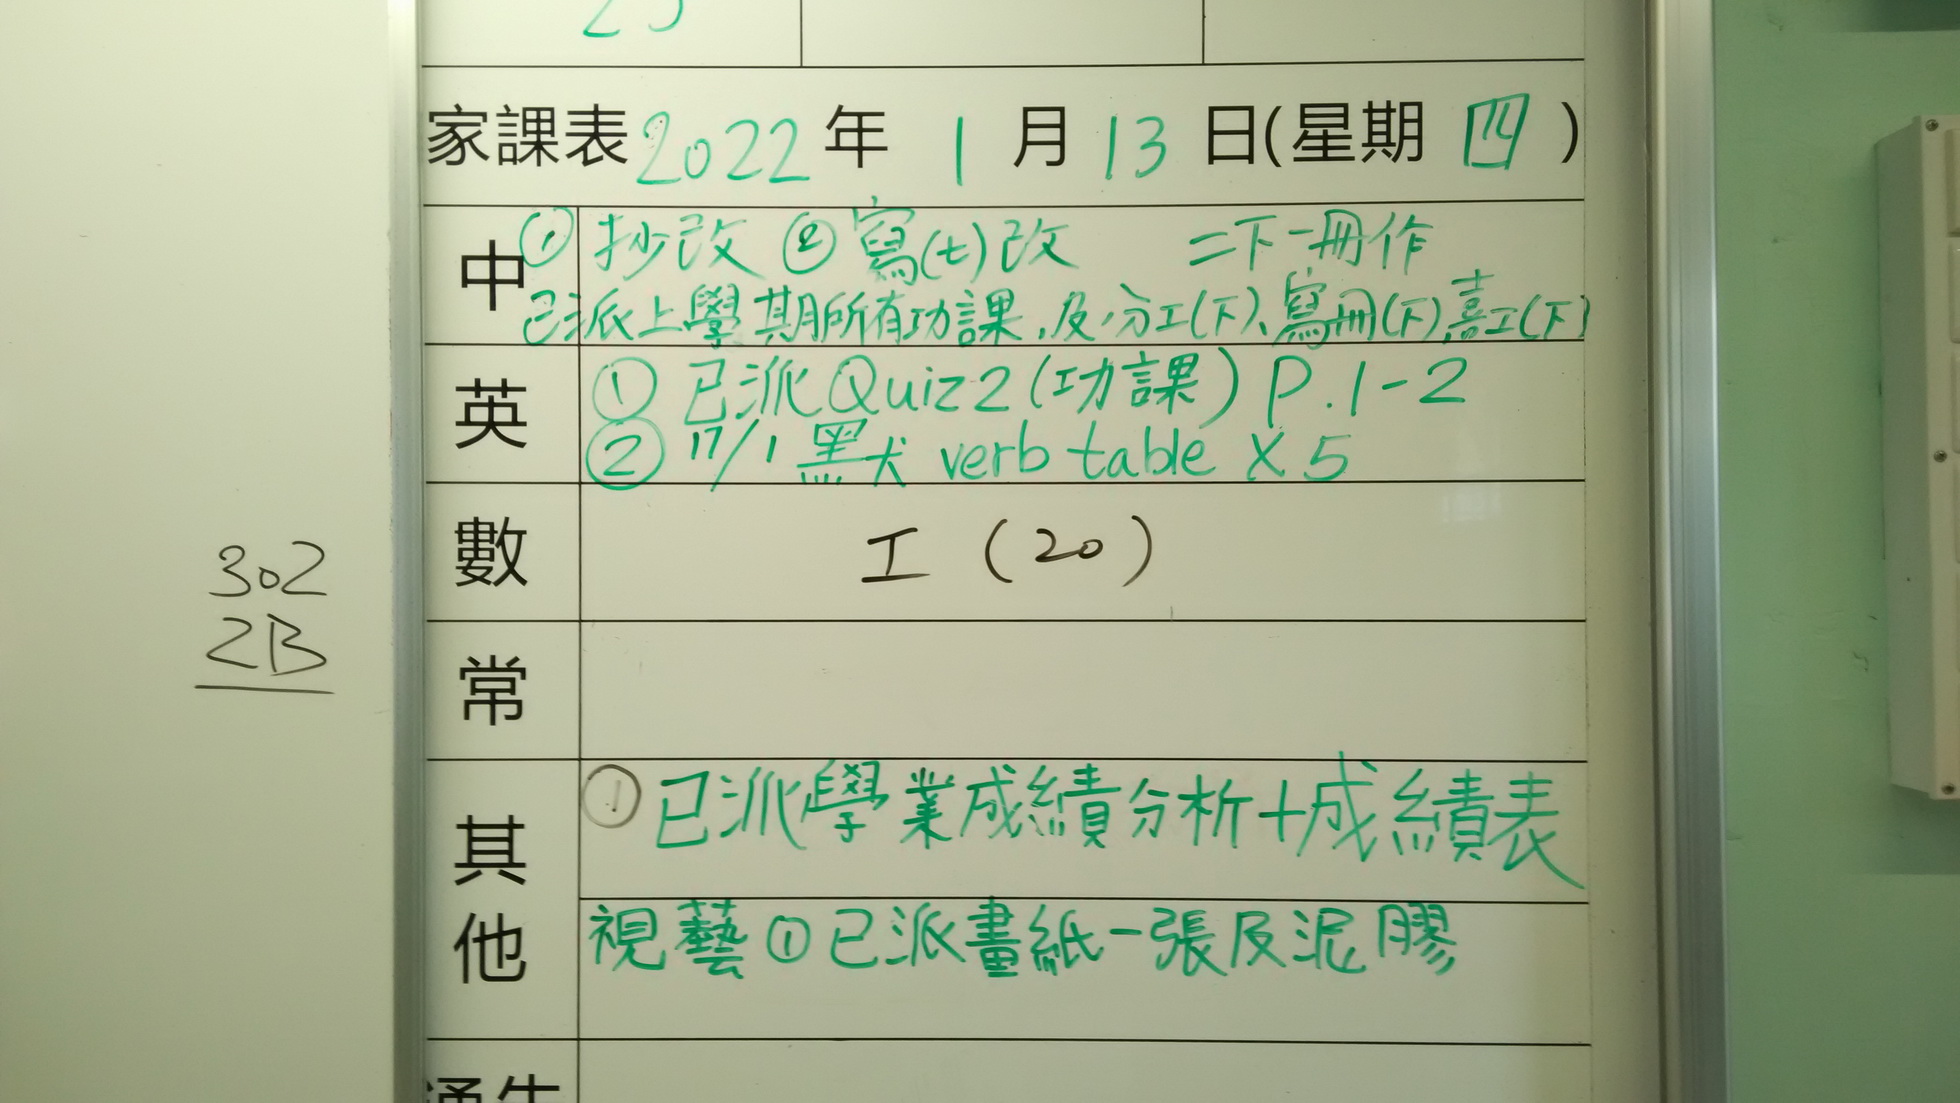 家課表 2022 年 1 月 13 日(星期 四 )
中 ① 抄改 ② 寫(七)改 二下一冊作
已派上學期所有功課,及分工(下)、寫冊(下),喜工(下)
英 ① 已派Quiz2(功課) P.1-2
② 17/1 黑犬 verb table X 5
數 工 (20)
302
2B
常
其他 ① 已派學業成績分析+成績表
視藝①已派畫紙一張及泥膠
通告